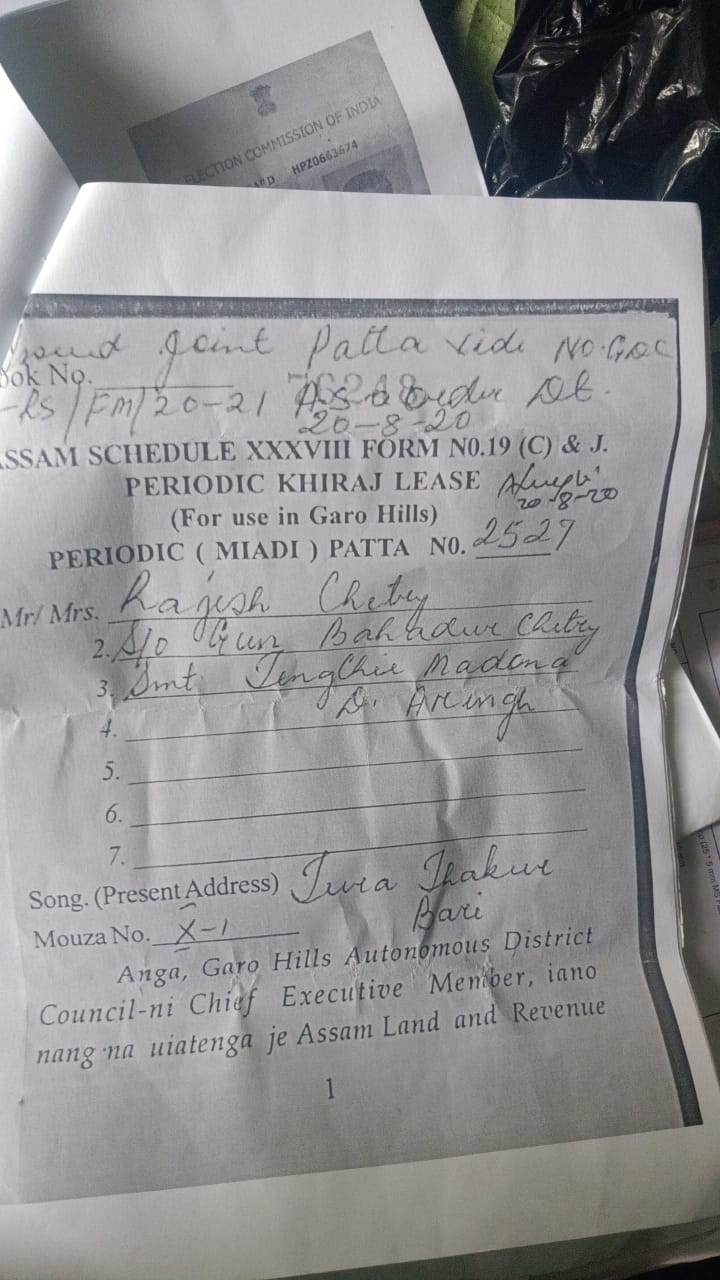 ELECTION COMMISSION OF INDIA
HPZ0663674
Joint Patta vide NO. GDC
Book No.
-RS/FM/20-21 As a order Dt.
20-8-20
ASSAM SCHEDULE XXXVIII FORM N0.19 (C) & J.
PERIODIC KHIRAJ LEASE
20-8-20
(For use in Garo Hills)
PERIODIC ( MIADI ) PATTA N0. 2527
Mr/ Mrs. Rajesh Chetry
2. S/o Gun Bahadur Chetry
3. Smt. Tengchie Madona
D. Arengh
4.
5.
6.
7.
Song. (Present Address) Tura Thakur
Bari
Mouza No. X-1
Anga, Garo Hills Autonomous District
Council-ni Chief Executive Member, iano
nang·na uiatenga je Assam Land and Revenue
1